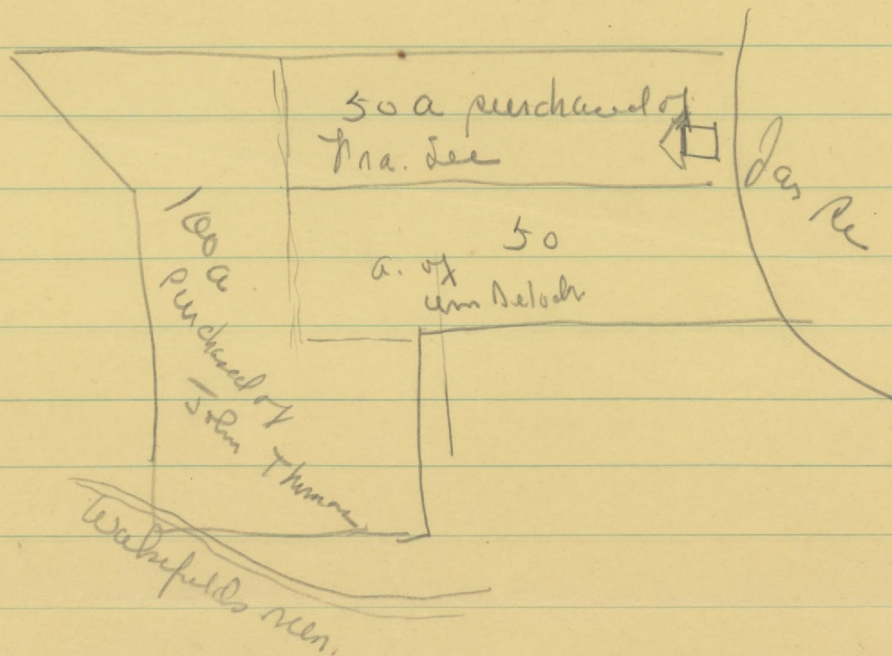 50 a purchased of
Fra. Lee
Jas Rr
50
a. of
Wm Deloch
100 a
purchased of
John Thomas
Wakefields run.